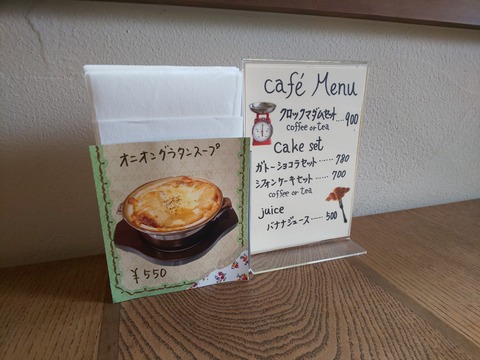 オニオングラタンスープ
¥550
café Menu
クロックマダムセット....900
coffee or tea
Cake set
ガトーショコラセット......780
シフォンケーキセット....700
coffee or tea
juice
バナナジュース......500